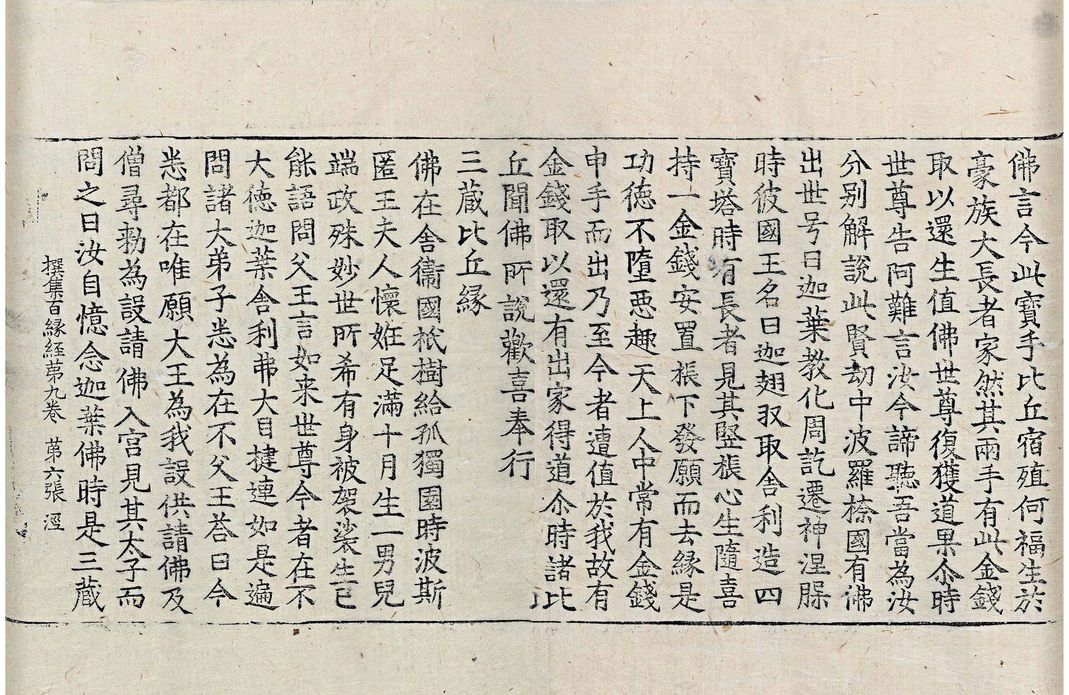 佛言今此寶手比丘宿殖何福生於
豪族大長者家然其兩手有此金錢
取以還生值佛世尊復獲道果尒時
世尊告阿難言汝今諦聽吾當為汝
分別解說此賢劫中波羅㮈國有佛
出世号曰迦葉教化周訖遷神涅槃
時彼國王名曰迦翅収取舍利造四
寶塔時有長者見其竪棖心生隨喜
持一金錢安置棖下發願而去緣是
功德不墮惡趣天上人中常有金錢
申手而出乃至今者遭值於我故有
金錢取以還有出家得道尒時諸比
丘聞佛所說歡喜奉行
三藏比丘緣
佛在舍衞國祇樹給孤獨園時波斯
匿王夫人懷姙足滿十月生一男兒
端政殊妙世所希有身被袈裟生已
能語問父王言如来世尊今者在不
大德迦葉舍利弗大目揵連如是遍
問諸大弟子悉為在不父王荅曰今
悉都在唯願大王為我設供請佛及
僧尋勑為設請佛入宮見其太子而
問之曰汝自憶念迦葉佛時是三藏
撰集百緣經第九卷 第六張 涇